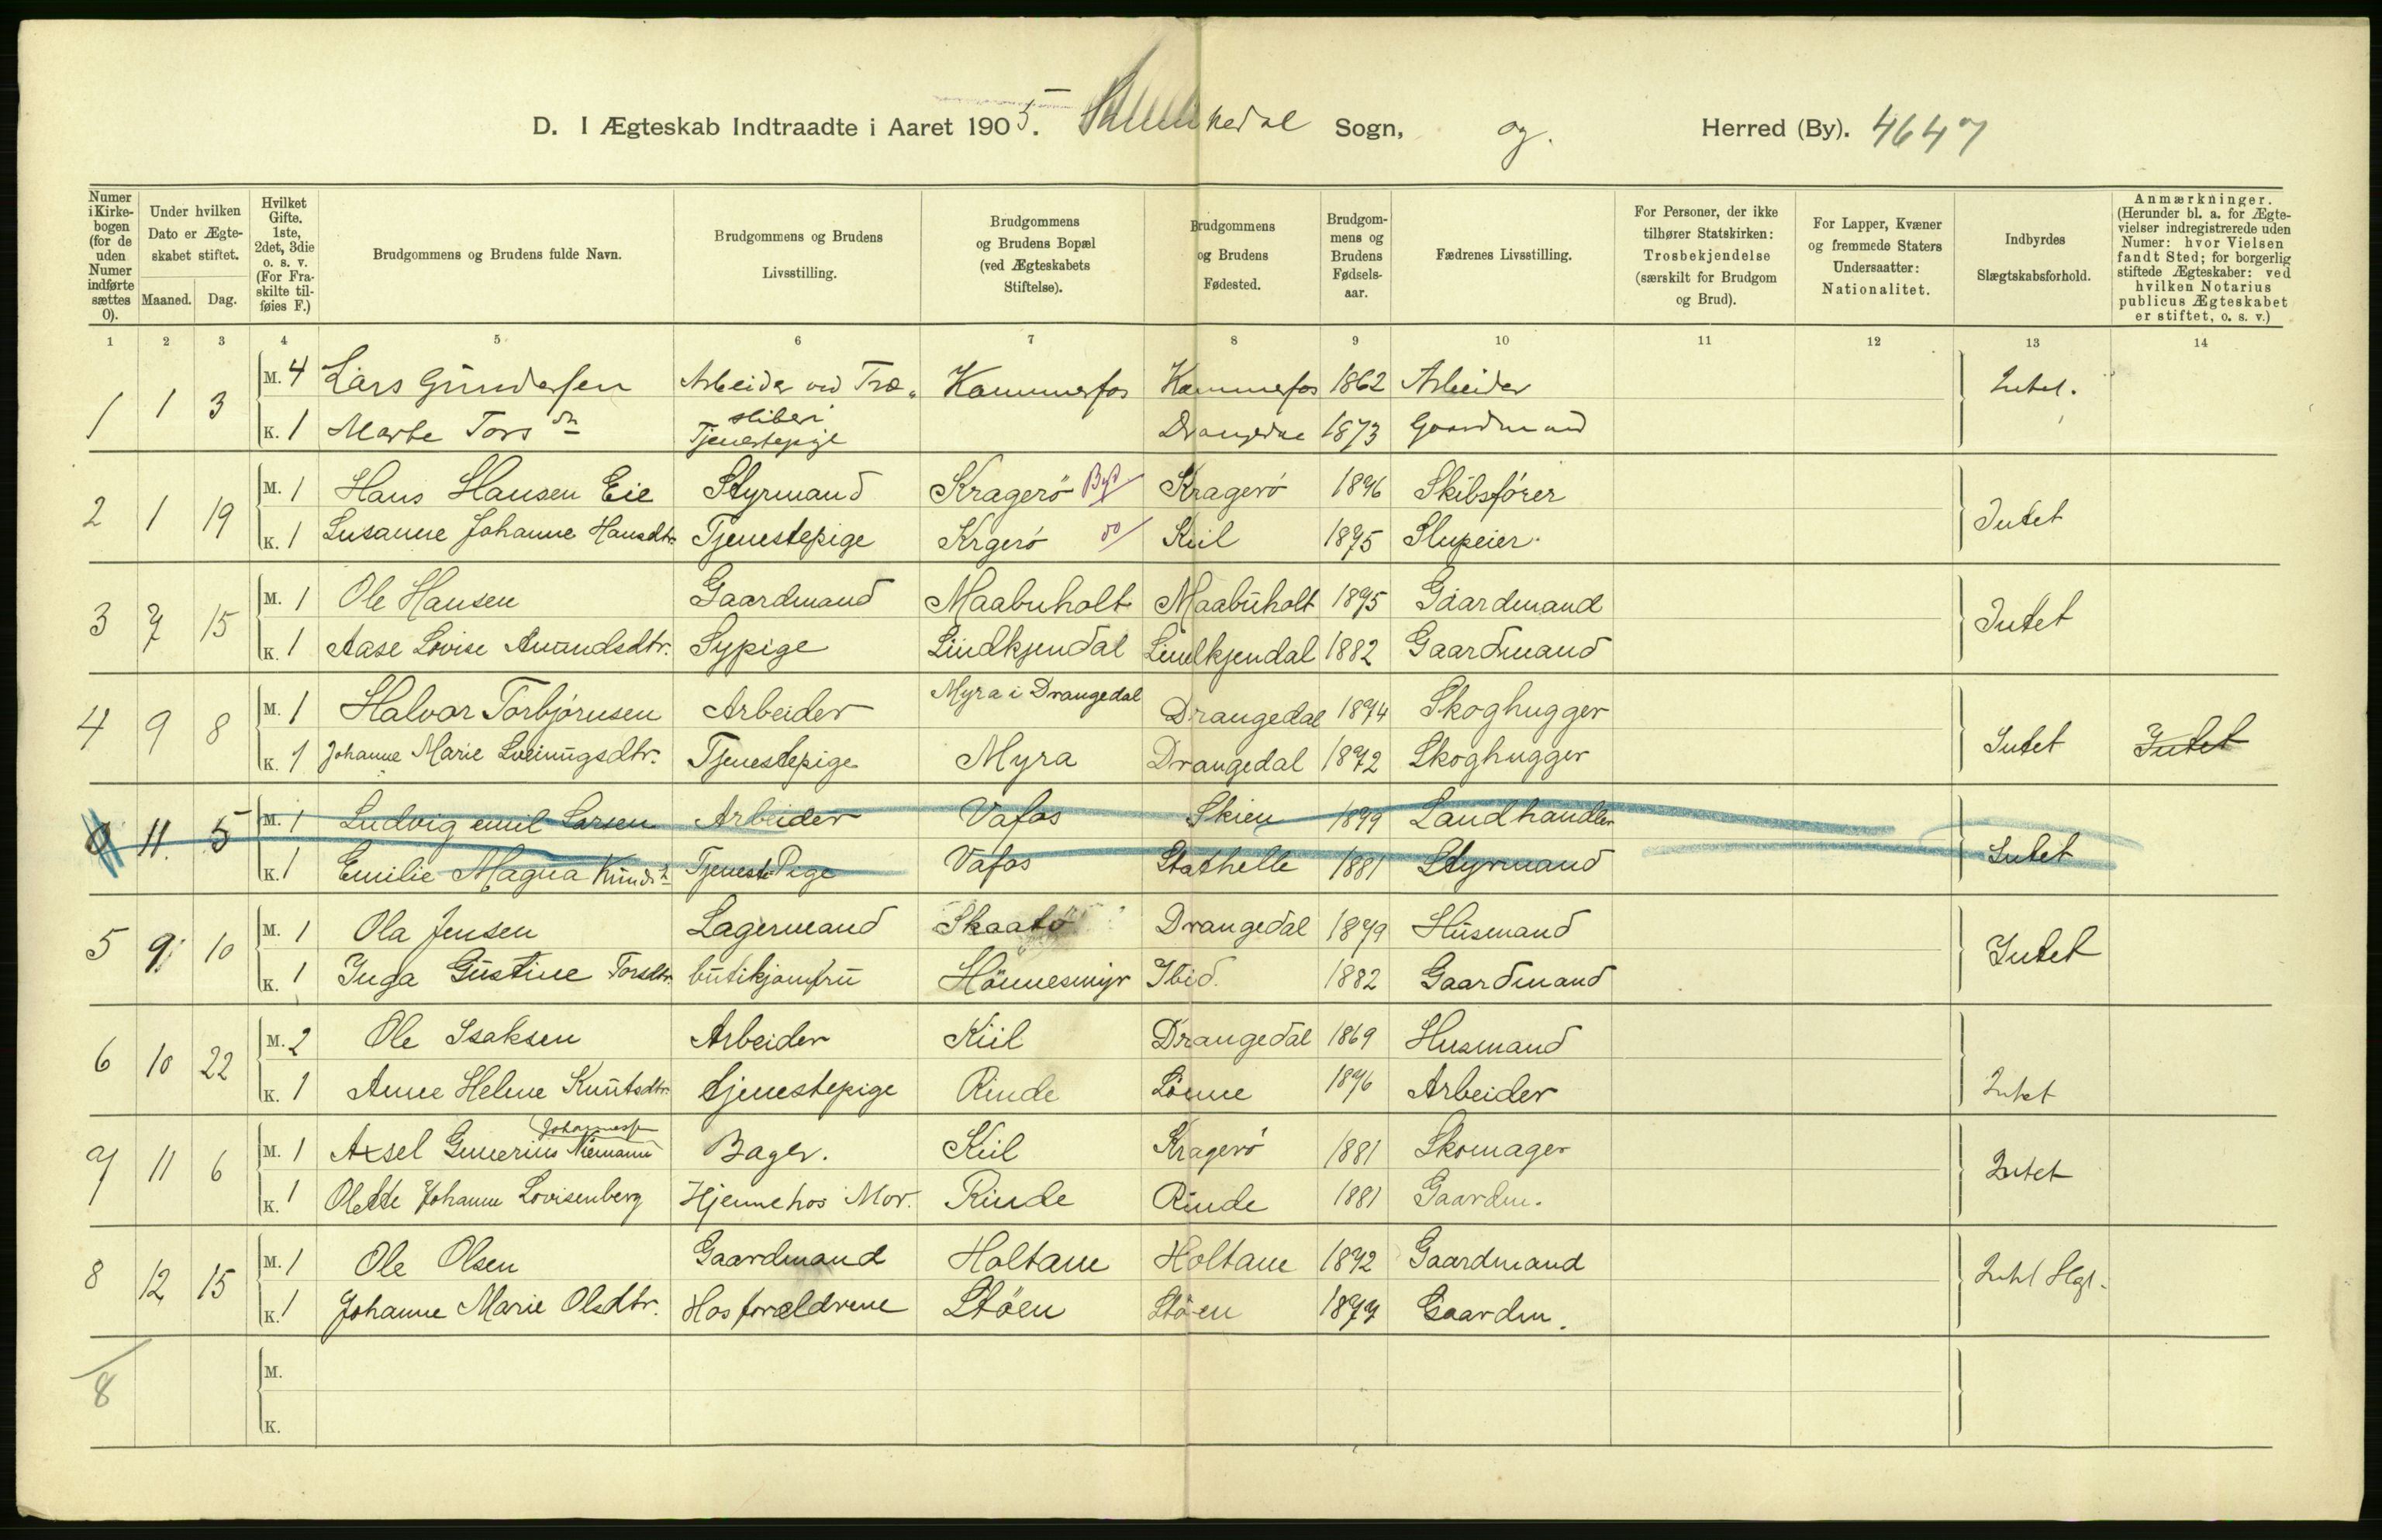 D. I Ægteskab Indtraadte i Aaret 1905. Sogn, og. Herred (By). 4647
Numer i Kirke- bogen (for de uden Numer indførte sættes 0).
Under hvilken Dato er Ægte- skabet stiftet.
Maaned. Dag.
Hvilket Gifte. 1ste, 2det, 3die o. s. v. (For Fra- skilte til- føies F.)
Brudgommens og Brudens fulde Navn.
Brudgommens og Brudens Livsstilling.
Brudgommens og Brudens Bopæl (ved Ægteskabets Stiftelse).
Brudgommens og Brudens Fødested.
Brudgom- mens og Brudens Fødsels- aar.
Fædrenes Livsstilling.
For Personer, der ikke tilhører Statskirken: Trosbekjendelse (særskilt for Brudgom og Brud).
For Lapper, Kvæner og fremmede Staters Undersaatter: Nationalitet.
Indbyrdes Slægtskabsforhold.
Anmærkninger. (Herunder bl. a. for Ægte- vielser indregistrerede uden Numer: hvor Vielsen fandt Sted; for borgerlig stiftede Ægteskaber: ved hvilken Notarius publicus Ægteskabet er stiftet, o. s. v.)
1 2 3 4 5 6 7 8 9 10 11 12 13 14
1 1 3 M. 4 Lars Gundersen Arbeider ved Træ- Kammerfos Kammerfos 1862 Arbeider Intet.
sliberi
K. 1 Marte Tors dtr Tjenestepige Drangedal 1873 Gaardmand
2 1 19 M. 1 Hans Hansen Eie Styrmand Kragerö By Kragerö 1876 Skibsfører Intet
K. 1 Susanne Johanne Hansdtr. Tjenestepige Krgerö do Kiil 1875 Slupeier.
3 7 15 M. 1 Ole Hansen Gaardmand Maabuholt Maabuholt 1875 Gaardmand Intet
K. 1 Aase Lovise Amundsdtr. Sypige Lindkjendal Lindkjendal 1882 Gaardmand
4 9 8 M. 1 Halvor Torbjørnsen Arbeider Myra i Drangedal Drangedal 1874 Skoghugger
K. 1 Johanne Marie Sveinugsdtr. Tjenestepige Myra Drangedal 1872 Skoghugger Intet Intet
0 11. 5 M. 1 Ludvig emil Larsen Arbeider Vafos Skien 1879 Landhandler Intet
K. 1 Emilie Magna Knudsdt Tjeneste Pige Vafos Stathelle 1881 Styrmand
5 9. 10 M. 1 Ola Jensen Lagermand Skaatö Drangedal 1879 Husmand Intet
K. 1 Inga Gustine Torsdtr. butikjomfru Hönnesmyr Ibid. 1882 Gaardmand
6 10 22 M. 2 Ole Isaksen Arbeider Kiil Drangedal 1869 Husmand
K. 1 Anne Helene Knutsdtr. tjenestepige Rinde Lönne 1876 Arbeider Intet
Johannessen
7 11 6 M. 1 Axsel Niemann Bager. Kiil Kragerö 1881 Skomager Intet
K. 1 Olette Johanne Lovisenberg Hjemme hos Mor. Rinde Rinde 1881 Gaardm.
8 12 15 M. 1 Ole Olsen Gaardmand Holtane Holtane 1872 Gaardmand Intet
K. 1 Johanne Marie Olsdtr. Hos forældrene Stöen Stöen 1877 Gaardm.
8 M.
K.